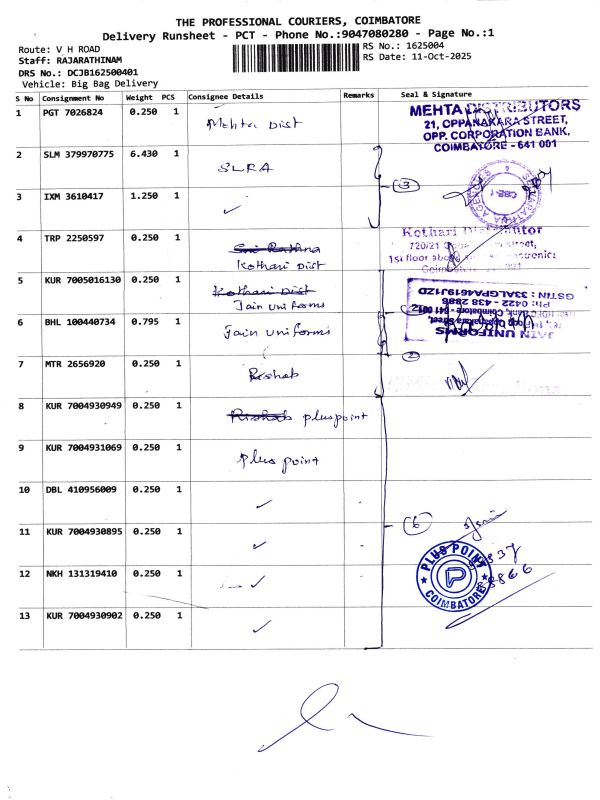 THE PROFESSIONAL COURIERS, COIMBATORE
Delivery Runsheet - PCT - Phone No.:9047080280 - Page No.:1
Route: V H ROAD
RS No.: 1625004
Staff: RAJARATHINAM
RS Date: 11-Oct-2025
DRS No.: DCJB162500401
Vehicle: Big Bag Delivery
S No Consignment No Weight PCS Consignee Details Remarks Seal & Signature
1 PGT 7026824 0.250 1 Mehta Dist
MEHTA DISTRIBUTORS
21, OPPANAKARA STREET,
OPP. CORPORATION BANK,
COIMBATORE - 641 001
2 SLM 379970775 6.430 1 SLRA
3 IXM 3610417 1.250 1 ✓
3
CBE-1
4 TRP 2250597 0.250 1 Sri Rathna
Kothari Dist
Kothari Distributor
720/21 street,
1st floor above
5 KUR 7005016130 0.250 1 Kothari Dist
Jain uniforms
6 BHL 100440734 0.795 1 Jain uniforms
JAIN UNIFORMS
Ph: 0422 - 438 2898
GSTIN : 33ALGPA4619J1ZD
2
7 MTR 2656920 0.250 1 Rishab
8 KUR 7004930949 0.250 1 Rishab pluspoint
9 KUR 7004931069 0.250 1 plus point
10 DBL 410956009 0.250 1 ✓
11 KUR 7004930895 0.250 1 ✓
6
12 NKH 131319410 0.250 1 ✓
PLUS POINT
P
COIMBATORE
88866
13 KUR 7004930902 0.250 1 ✓